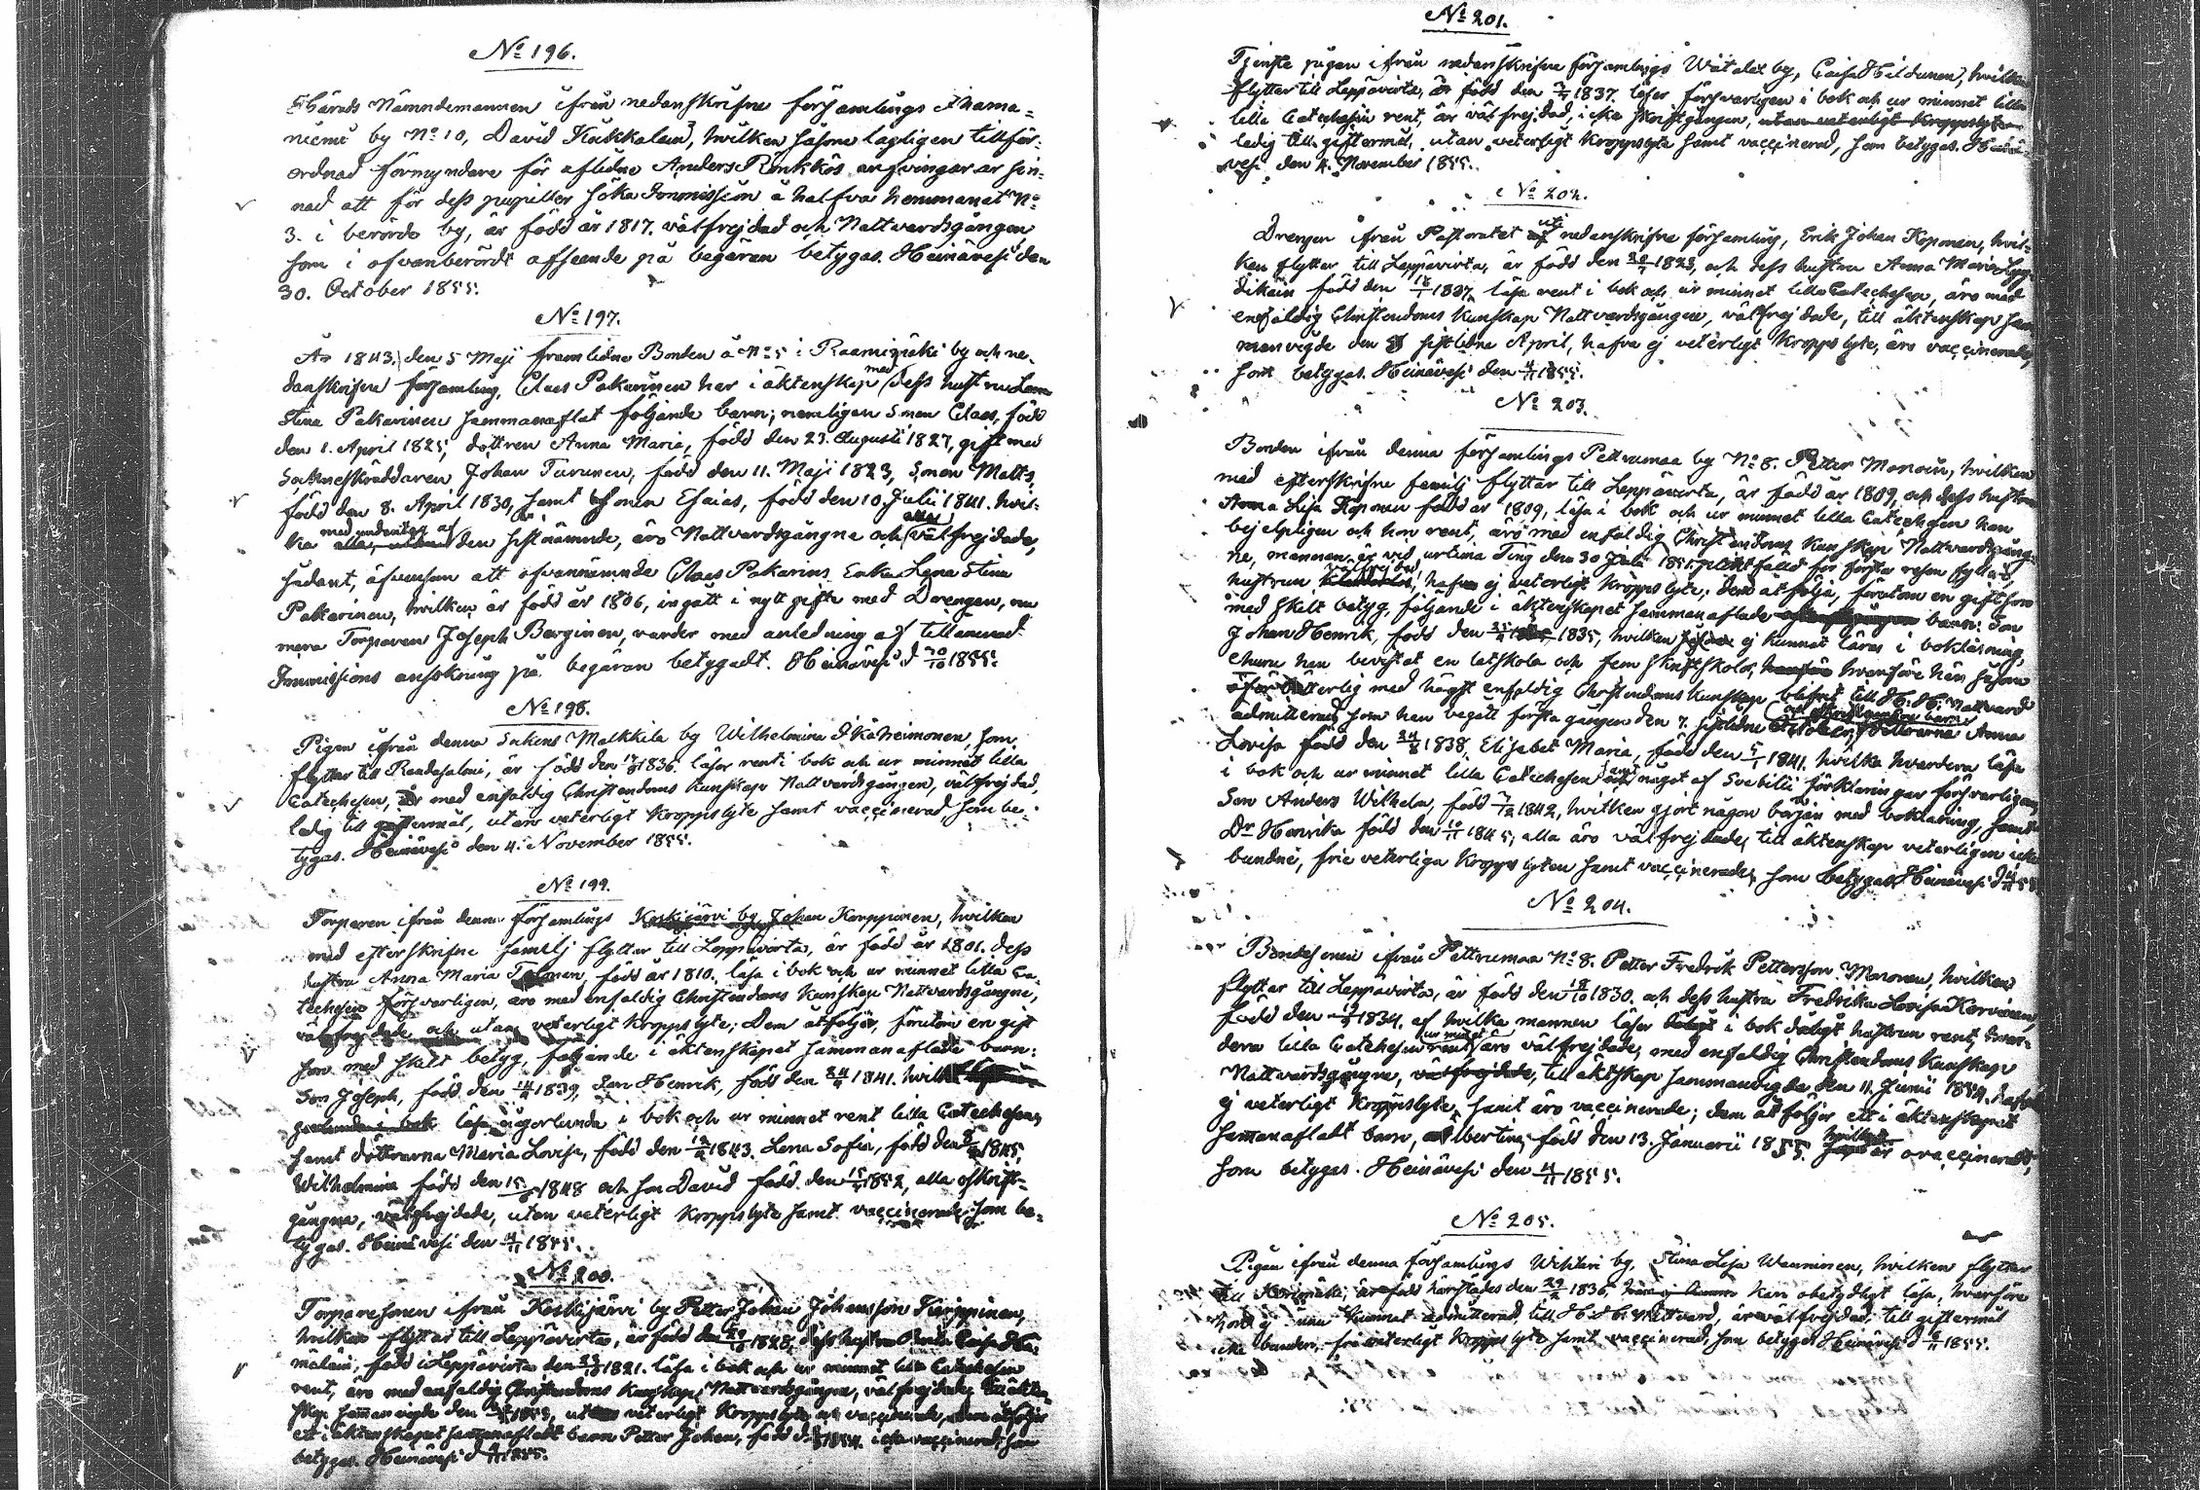 No 196.
Härads Nämndemannen ifrån nedanskrifne församlings
niemi by No 10, David Kukkalain, hvilken såsom lagligen tillför-
ordnad förmyndare för aflidne Anders Ronkkös arfvingar är sin-
nad att för dess pupiller söka Immission å halfva hemmanet No
3. i berörde by, är född år 1817. välfrejdad och Nattvardsgången
som i ofvanberörde afseende på begäran betygas. Heinävesi den
30. October 1855.
No 197.
År 1843, den 5 Maji framlidne Bonden å No 5 i Raamimäki by och ne-
danskrifne församling, Claes Pakarinen har i äktenskap med dess hustru Lena
Stina Pakarinen sammanaflat följande barn; nemligen Sonen Claes, född
den 1. April 1825, dottren Anna Maria, född den 23. Augusti 1827, gift med
Sockneskräddaren Johan Turunen, född den 11. Maji 1823, Sonen Matts,
född den 8. April 1830, samt Sonen Esaias, född den 10 Julii 1841. hvil-
ka med undantag af den sistnämnde, äro Nattvardsgångne och välfrejdade,
sådant, äfvensom att ofvannämnde Claes Pakarins Enka Lena Stina
Pakarinen, hvilken är född år 1806, ingått i nytt gifte med Drengen, nu
mera Torparen Joseph Berginen, varder med anledning af tillämnad
Immissions ansökning på begäran betygadt. Heinävesi d 30/10 1855.
No 198.
Pigan ifrån denna Sockens Malkkila by Wilhelmina Ikäheimonen, som
flyttar till Randasalmi, är född den 1836. läser rent i bok och ur minnet lilla
Catechesen, är med enfaldig Christendoms kunskap Nattvardsgången, välfrejdad,
ledig till giftermål, utan veterligt kroppslyte samt vaccinerad, som be-
tygas. Heinävesi den 4. November 1855.
No 199.
Torparen ifrån denna församlings Koskijärvi by Johan Korppinen, hvilken
med efterskrifne familj flyttar till Leppävirta, är född år 1801. dess
hustru Anna Maria född år 1810. läsa i bok och ur minnet lilla Ca-
techesen försvarligen, äro med enfaldig Christendoms kunskap Nattvardsgångne,
välfrejdade och utan veterligt kroppslyte; Dem åtföljer, förutom en gift
son med skilt betyg, följande i äktenskapet sammanaflade barn:
Son Joseph, född den 1839, Son Henrik, född den 1841. hvilka
läsa någorlunda i bok och ur minnet rent lilla Catechesen,
samt döttrarna Maria Lovisa, född den 1843. Lena Sofia, född den 1845,
Wilhelmina född den 1848 och son David född den 1852, alla oskrift-
gångna, välfrejdade, utan veterligt kroppslyte samt vaccinerade; som be-
tygas. Heinävesi den 4/11 1855.
No 200.
Torparesonen ifrån Koskijärvi by Petter Johan Johansson Korppinen,
hvilken flyttar till Leppävirta, är född den 1828, dess hustru Caisa Hä-
mäläin, född i Leppävirta den 1821. läsa i bok och ur minnet lilla Catechesen
rent, äro med enfaldig Christendoms kunskap Nattvardsgångna, välfrejdade, till äkten-
skap sammanvigde den 1853, utan veterligt kroppslyte och vaccinerade, dem åtföljer
ett i äktenskapet sammanafladt barn Petter Johan, född d. 1854. icke vaccinerad, som
betygas. Heinävesi d 4/11 1855.
No 201.
Tjenste pigan ifrån nedanskrifne församlings by, Caisa Hildunen, hvilken
flyttar till Leppävirta, är född den 1837. läser försvarligen i bok och ur minnet lilla
lilla Catechesen rent, är välfrejdad, icke skriftgången,
ledig till giftermål, utan veterligt kroppslyte samt vaccinerad, som betygas. Heinä-
vesi den 4. November 1855.
No 202.
Drengen ifrån Pastoratet uti nedanskrifne församling, Erik Johan Koponen, hvil-
ken flyttar till Leppävirta, är född den 1823, och dess hustru Anna Maria
född den 1827, läsa rent i bok och ur minnet lilla Catechesen, äro med
enfaldig Christendoms kunskap Nattvardsgångna, välfrejdade, till äktenskap sam-
manvigde den sistlidne April, hafva ej veterligt kroppslyte, äro vaccinerade,
som betygas. Heinävesi den 4/11 1855.
No 203.
Bonden ifrån denna församlings Pettrumaa by No 8. Petter Moroin, hvilken
med efterskrifne familj flyttar till Leppävirta, är född år 1809, och dess hustru
Anna Lisa Koponen född år 1809, läsa i bok och ur minnet lilla Catechesen han
behjelpligen och hon rent, äro med enfaldig Christendoms kunskap Nattvardsgång-
ne, mannen är vid urtima Ting den 30 Juli 1851 fälld för första resan fylleri,
hustrun välfrejdad, hafva ej veterligt kroppslyte; dem åtfölja, förutom en gift son
med skilt betyg, följande i äktenskapet sammanaflade barn: Son
Johan Henrik, född den 1835, hvilken ej kunnat läras i bokläsning,
ehuru han bevistat en lässkola och fem skriftskolor, hvarföre han såsom
oförbätterlig med högst enfaldig Christendoms kunskap blifvit till H. H. Nattvard
admitterad, som han begått första gången den 7. sistlidne October, döttrarna Anna
Lovisa född den 1838, Elisabet Maria, född den 1841. hvilka hvardera läsa
i bok och ur minnet lilla Catechesen samt något af Svebilii förklaringar försvarligen,
Son Anders Wilhelm, född 1842, hvilken gjort någon början med bokläsning, samt
Dr Henrika född den 1845, alla äro välfrejdade, till äktenskap veterligen icke
bundne, frie veterliga kroppslyten samt vaccinerade, som betygas. Heinävesi d 4/11 55
No 204.
Bondesonen ifrån Pettrumaa No 8. Petter Fredrik Pettersson Moronen, hvilken
flyttar till Leppävirta, är född den 1830. och dess hustru Fredrika Lovisa Kervinen,
född den 1834. af hvilka mannen läser i bok dåligt hustrun rent, hvar-
dera lilla Catechesen ur minnet rent, äro välfrejdade, med enfaldig Christendoms kunskap
Nattvardsgångne, till äktskap sammanvigda den 11. Junii 1854, hafva
ej veterligt kroppslyte, samt äro vaccinerade; dem åtföljer ett i äktenskapet
sammanafladt barn, Albertina, född den 13. Januarii 1855. hvilket är ovaccineradt,
som betygas. Heinävesi den 4/11 1855.
No 205.
Pigan ifrån denna församlings Wihtari by, Stina Lisa Wänninen, hvilken flyttar
till Kerimäki, är född härstädes den 1836, kan obetydligt läsa, hvarföre
hon ej ännu kunnat admitterad till H. H. Nattvard, är välfrejdad, till giftermål
icke bunden, fri veterligt kroppslyte samt vaccinerad, som betygas Heinävesi d 1855.